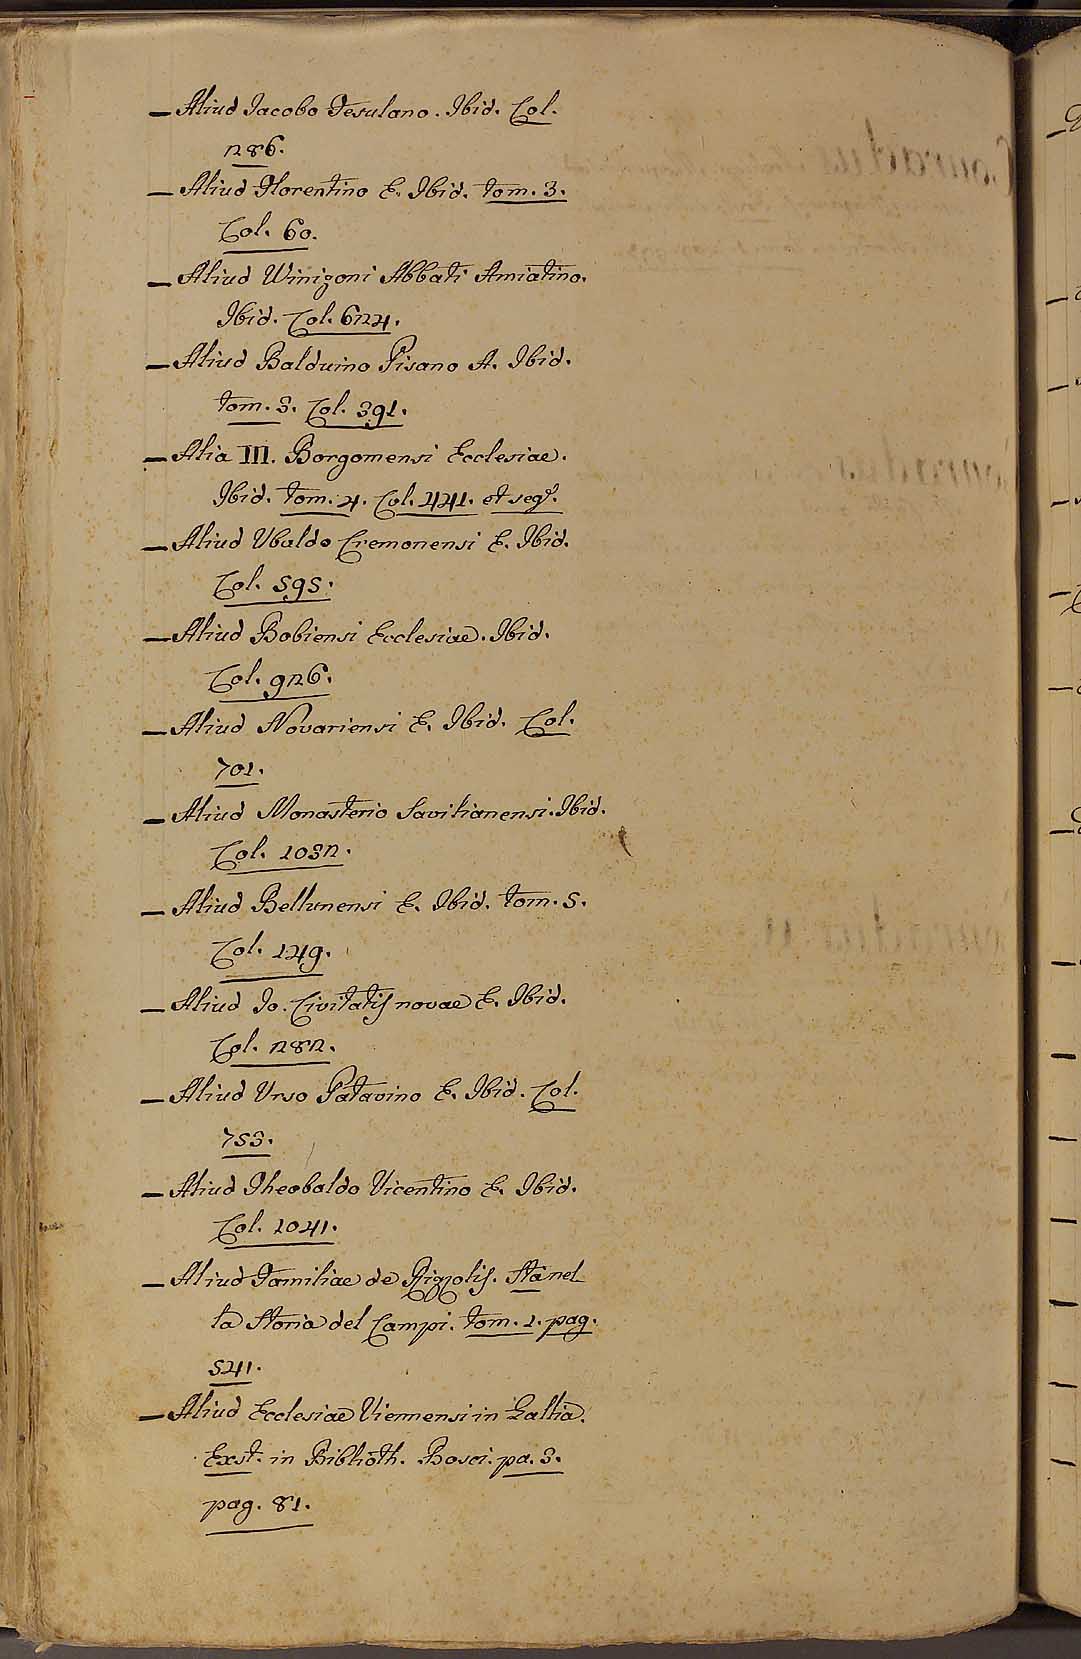 — Aliud Jacobo Fesulano. Ibid. Col.
286.
— Aliud Florentino E. Ibid. tom. 3.
Col. 60.
— Aliud Winizoni Abbati Amiatino.
Ibid. Col. 624.
— Aliud Balduino Pisano A. Ibid.
tom. 3. Col. 391.
— Alia III. Borgomensi Ecclesiae.
Ibid. tom. 4. Col. 441. et seqq.
— Aliud Ubaldo Cremonensi E. Ibid.
Col. 595.
— Aliud Bobiensi Ecclesiae. Ibid.
Col. 926.
— Aliud Novariensi E. Ibid. Col.
701.
— Aliud Monasterio Savilianensi. Ibid.
Col. 1032.
— Aliud Bellunensi E. Ibid. tom. 5.
Col. 149.
— Aliud Jo. Civitatis novae E. Ibid.
Col. 282.
— Aliud Urso Patavino E. Ibid. Col.
753.
— Aliud Theobaldo Vicentino E. Ibid.
Col. 1041.
— Aliud Familiae de Rizzolis. Sta nel
la Storia del Campi. tom. 1. pag.
541.
— Aliud Ecclesiae Viennensi in Gallia.
Exst. in Biblioth. Bosci. pa. 3.
pag. 81.